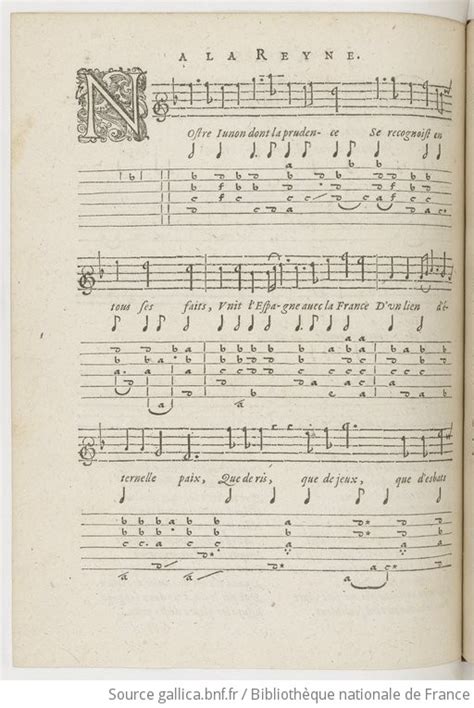 A LA REYNE.
NOstre Iunon dont la pruden- ce Se recognoist en
tous ses faits, Vnit l'Espa-gne auec la France D'vn lien d'é-
ternelle paix, Que de ris, que de jeux, que d'esbats
Source gallica.bnf.fr / Bibliothèque nationale de France